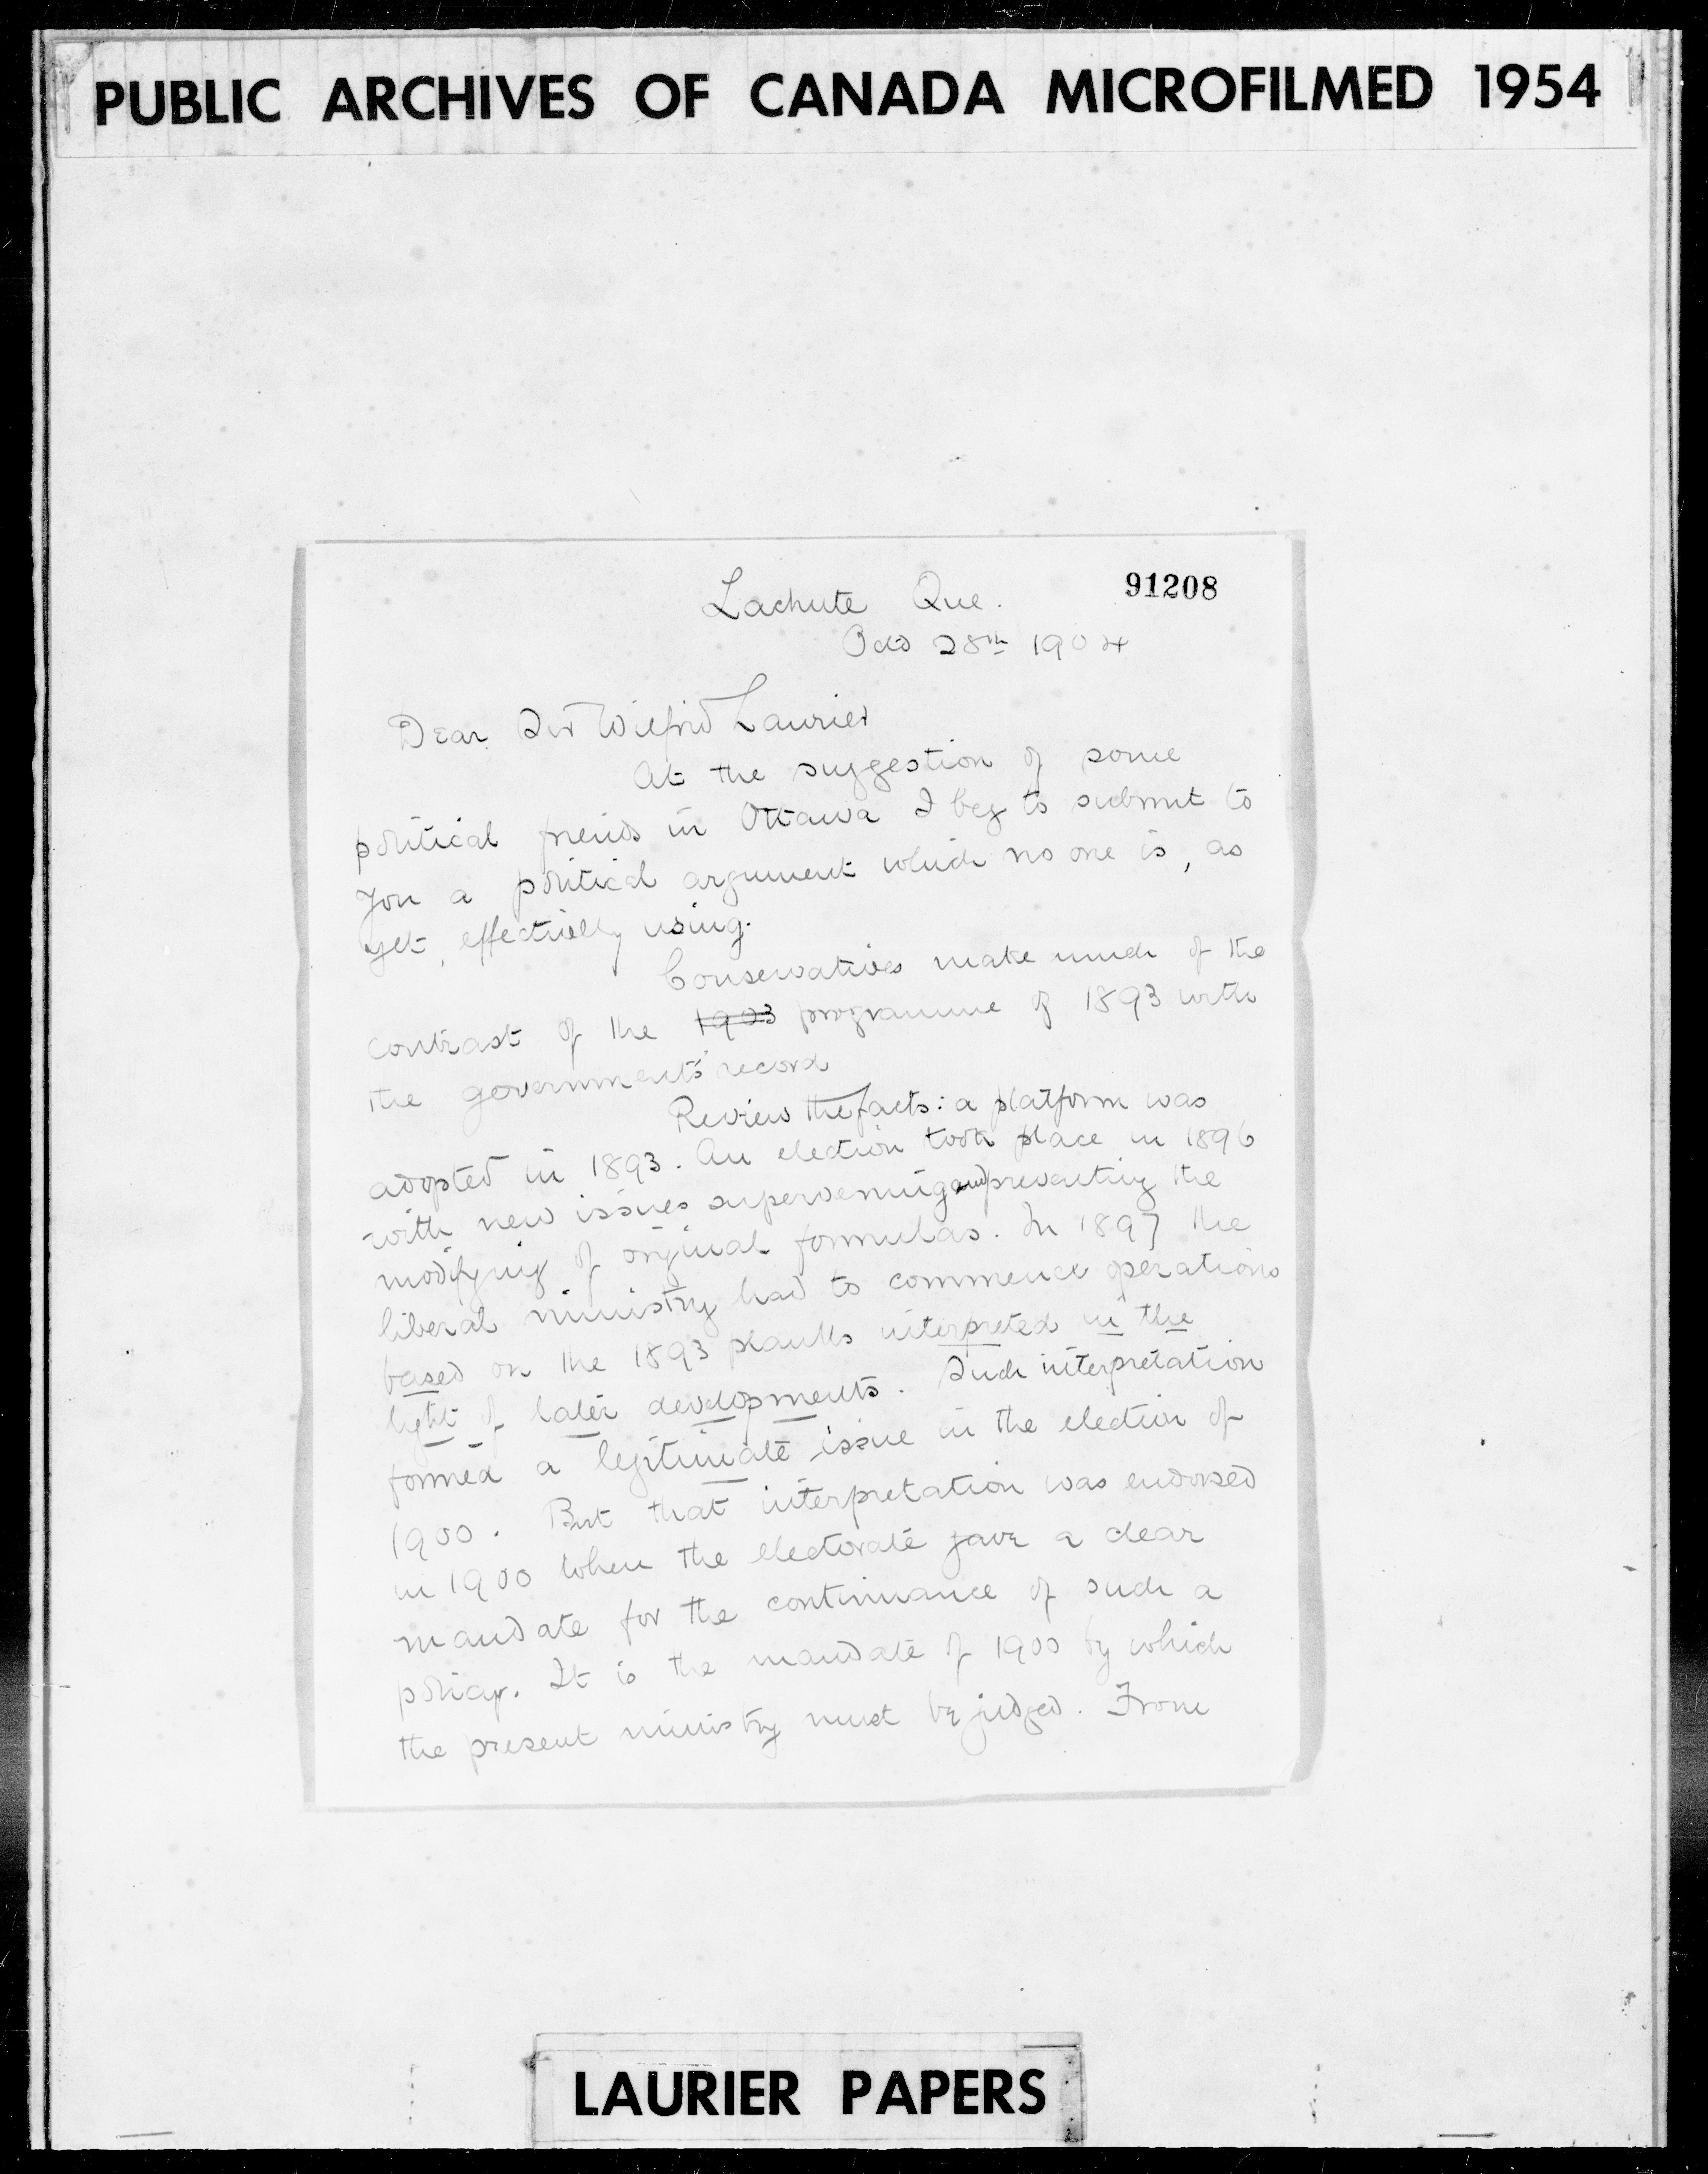 PUBLIC ARCHIVES OF CANADA MICROFILMED 1954
91208
Lachute Que.
Oct 28th 1904
Dear Sir Wilfrid Laurier
At the suggestion of some
political friends in Ottawa I beg to submit to
you a political argument which no one is, as
yet, effectively using.
Conservatives make much of the
contrast of the 1903 programme of 1893 with
the government's record
Review the facts: a platform was
adopted in 1893. An election took place in 1896
with new issues supervening and preventing the
modifying of original formulas. In 1897 the
liberal ministry had to commence operations
based on the 1893 planks interpreted in the
light of later developments. Such interpretation
formed a legitimate issue in the election of
1900. But that interpretation was endorsed
in 1900 when the electorate gave a clear
mandate for the continuance of such a
policy. It is the mandate of 1900 by which
the present ministry must be judged. From
LAURIER PAPERS